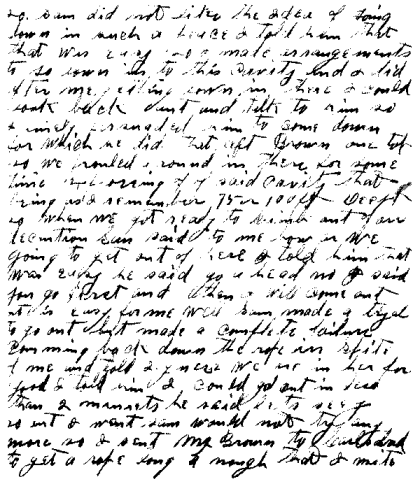 so. Sam did not like the idea of going
down in such a place I told him that
that was easy so I made arrangements
to go down in to this cavity and I did
after me getting down in there I could
look back out and talk to him so
I finely persuaded him to come down
for which he did that left Brown one top
so we prouled around in there for some
time exploring of said cavity that
being as I remember 75 or 100 ft Deep
so when we got ready to climb out our
Sam said to me how are we
going to get out of here I told him that
was easy he said go a head no I said
you go first and then I will come out
it is easy for me well Sam made a tryal
to go out but made a complete failure
comming back down the rope in spite
of me and told I guess we are in her for
good I told him I could go out in less
than 2 minuts he said lets see you
so out I went Sam would not try any
more so I sent Mr Brown to
to get a rope long a nough that I mite